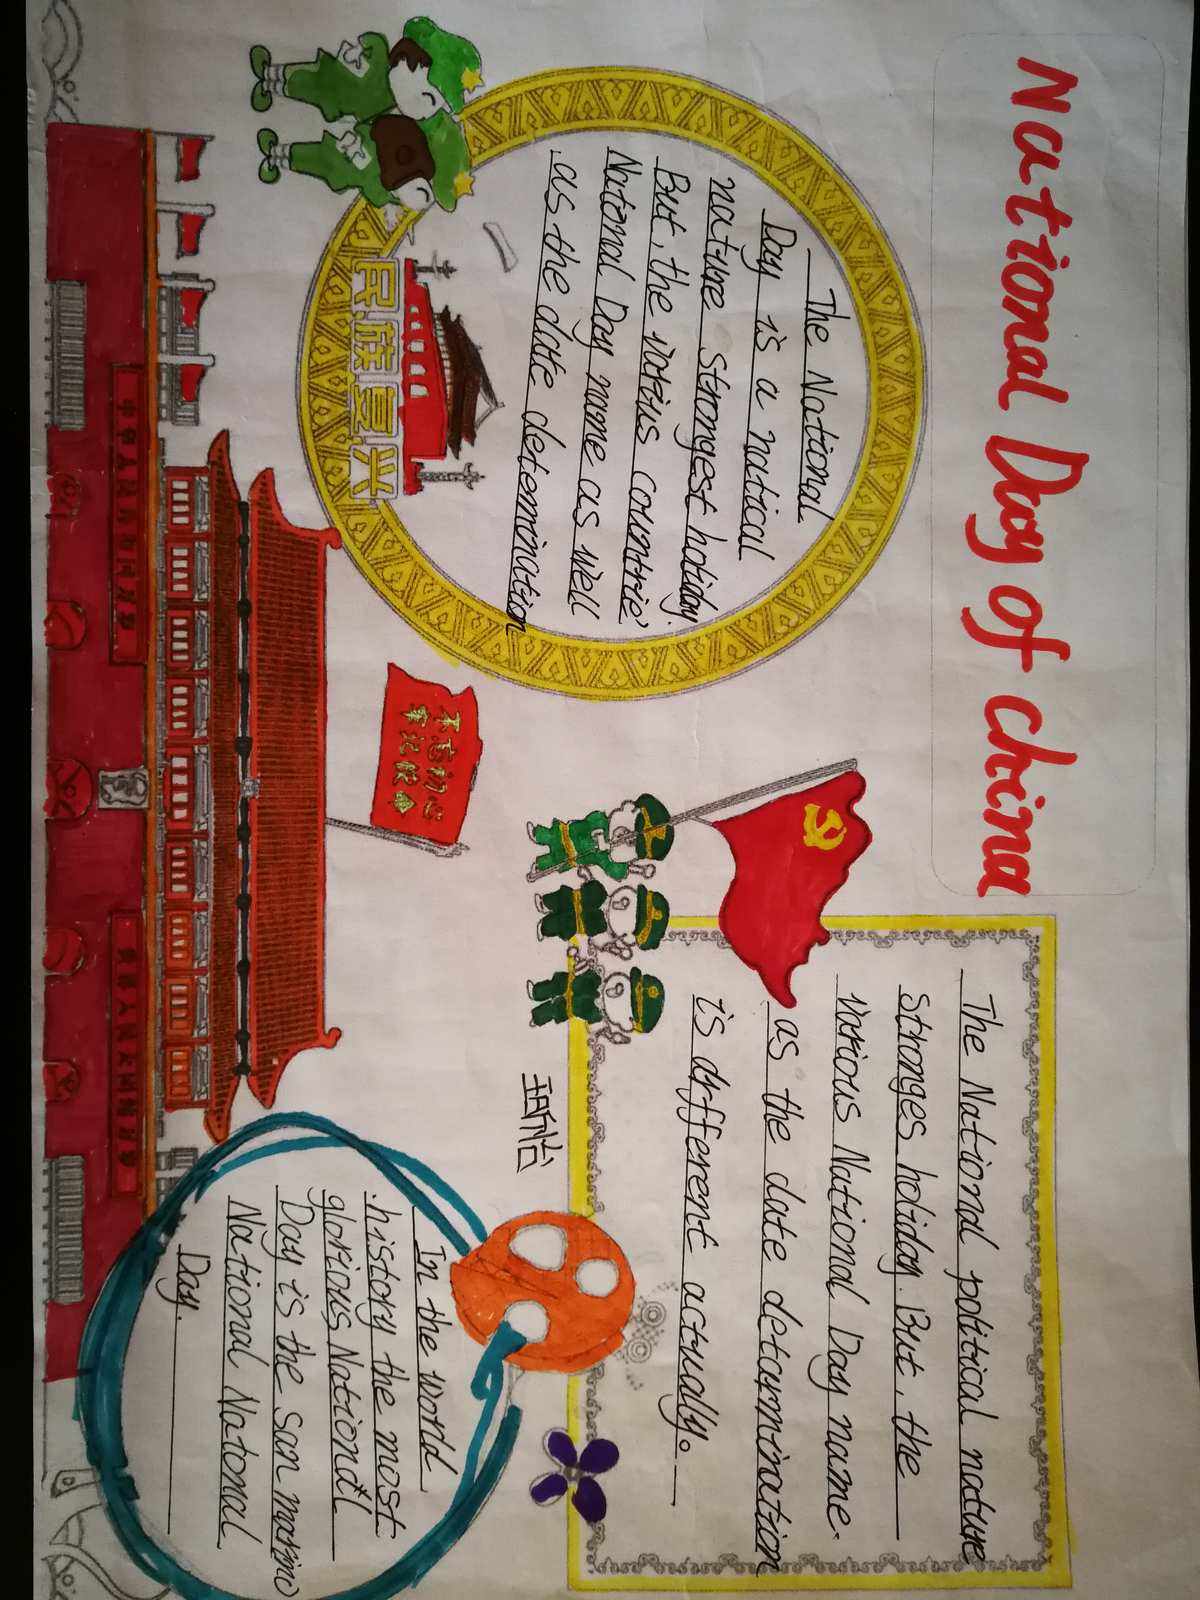 National Day of china
The National
Day is a natical
nature strongest holiday.
But, the varius countrie'
National Day name as well
as the date deternination
民族复兴
The National political nature
Stronges holiday. But, the
various National Day name.
as the date detarmination
is drfferent actually。
不忘初心
牢记使命
中华人民共和国万岁
In the world
.history the most
glorious Nationdl
Day is the San marino
National Natonal
Day.